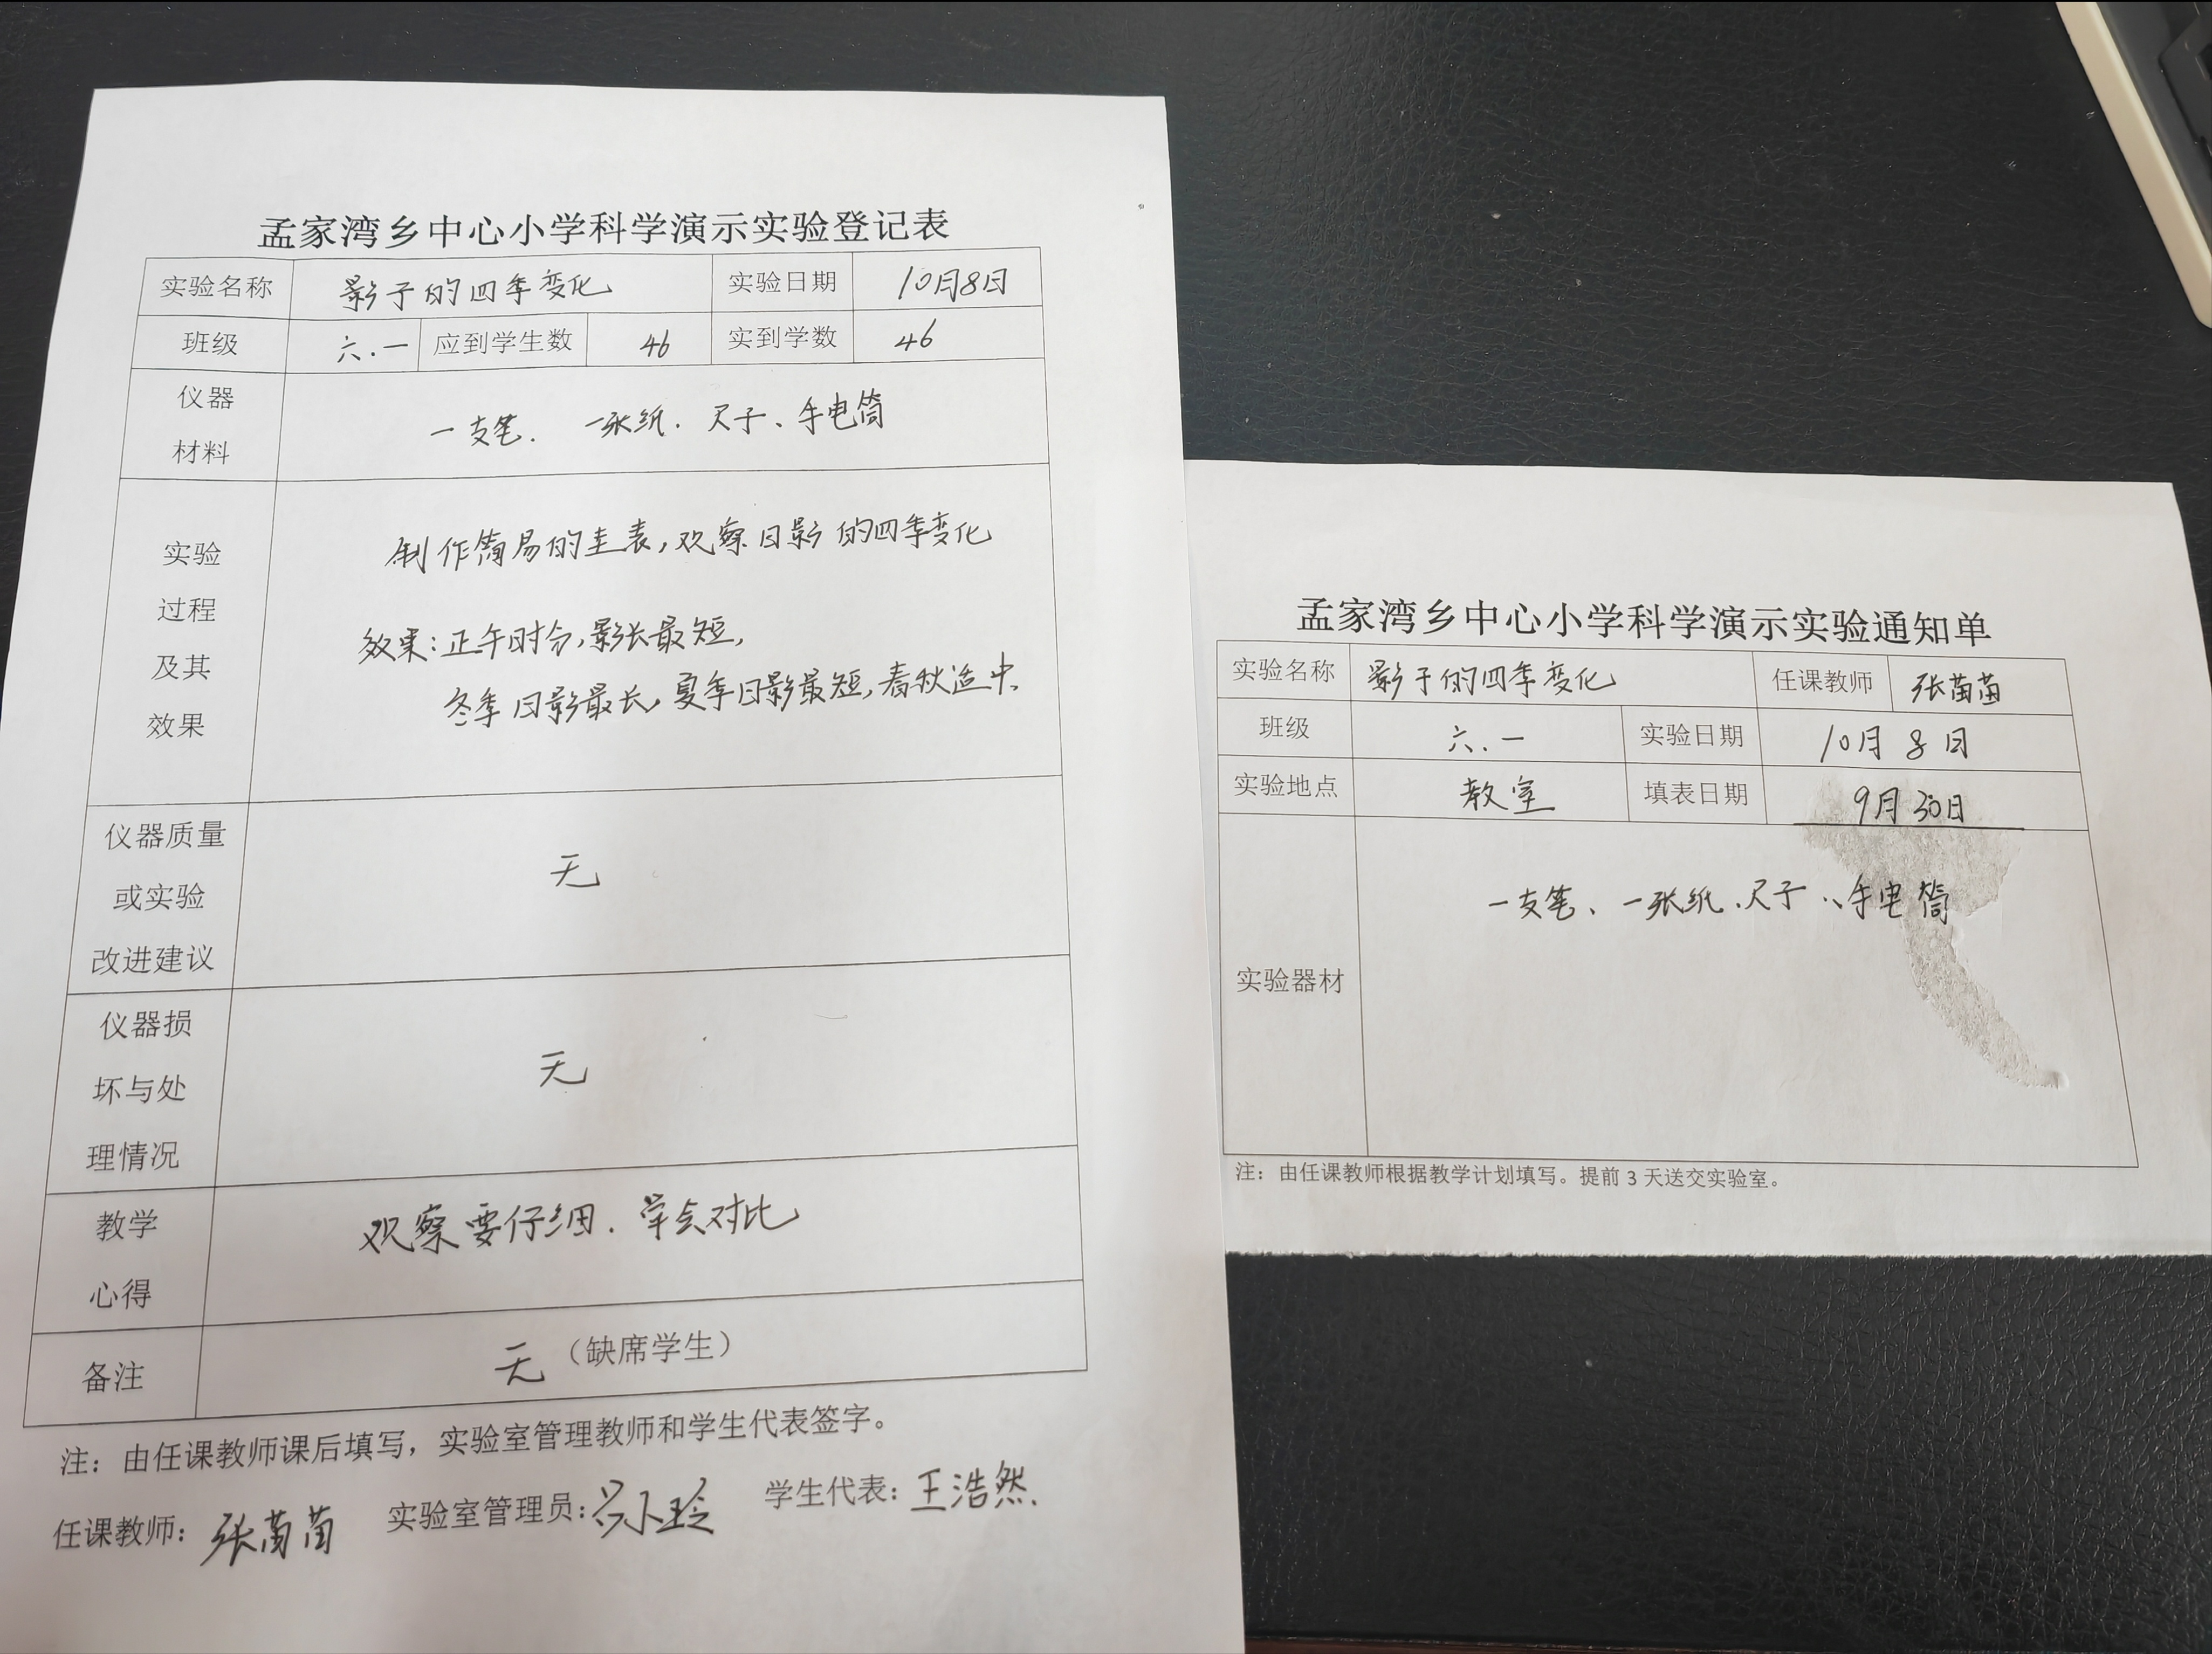 孟家湾乡中心小学科学演示实验登记表
实验名称 影子的四季变化 实验日期 10月8日
班级 六.一 应到学生数 46 实到学数 46
仪器
材料
一支笔. 一张纸. 尺子、手电筒
实验
过程
及其
效果
制作简易的圭表,观察日影的四季变化
效果:正午时分,影长最短,
冬季日影最长,夏季日影最短,春秋适中.
仪器质量
或实验
改进建议
无
仪器损
坏与处
理情况
无
教学
心得
观察要仔细. 学会对比
备注 无(缺席学生)
注:由任课教师课后填写,实验室管理教师和学生代表签字。
任课教师: 张苗苗 实验室管理员: 小玲 学生代表: 王浩然.
孟家湾乡中心小学科学演示实验通知单
实验名称 影子的四季变化 任课教师 张苗苗
班级 六.一 实验日期 10月8日
实验地点 教室 填表日期 9月30日
实验器材
一支笔、一张纸.尺子、手电筒
注:由任课教师根据教学计划填写。提前3天送交实验室。